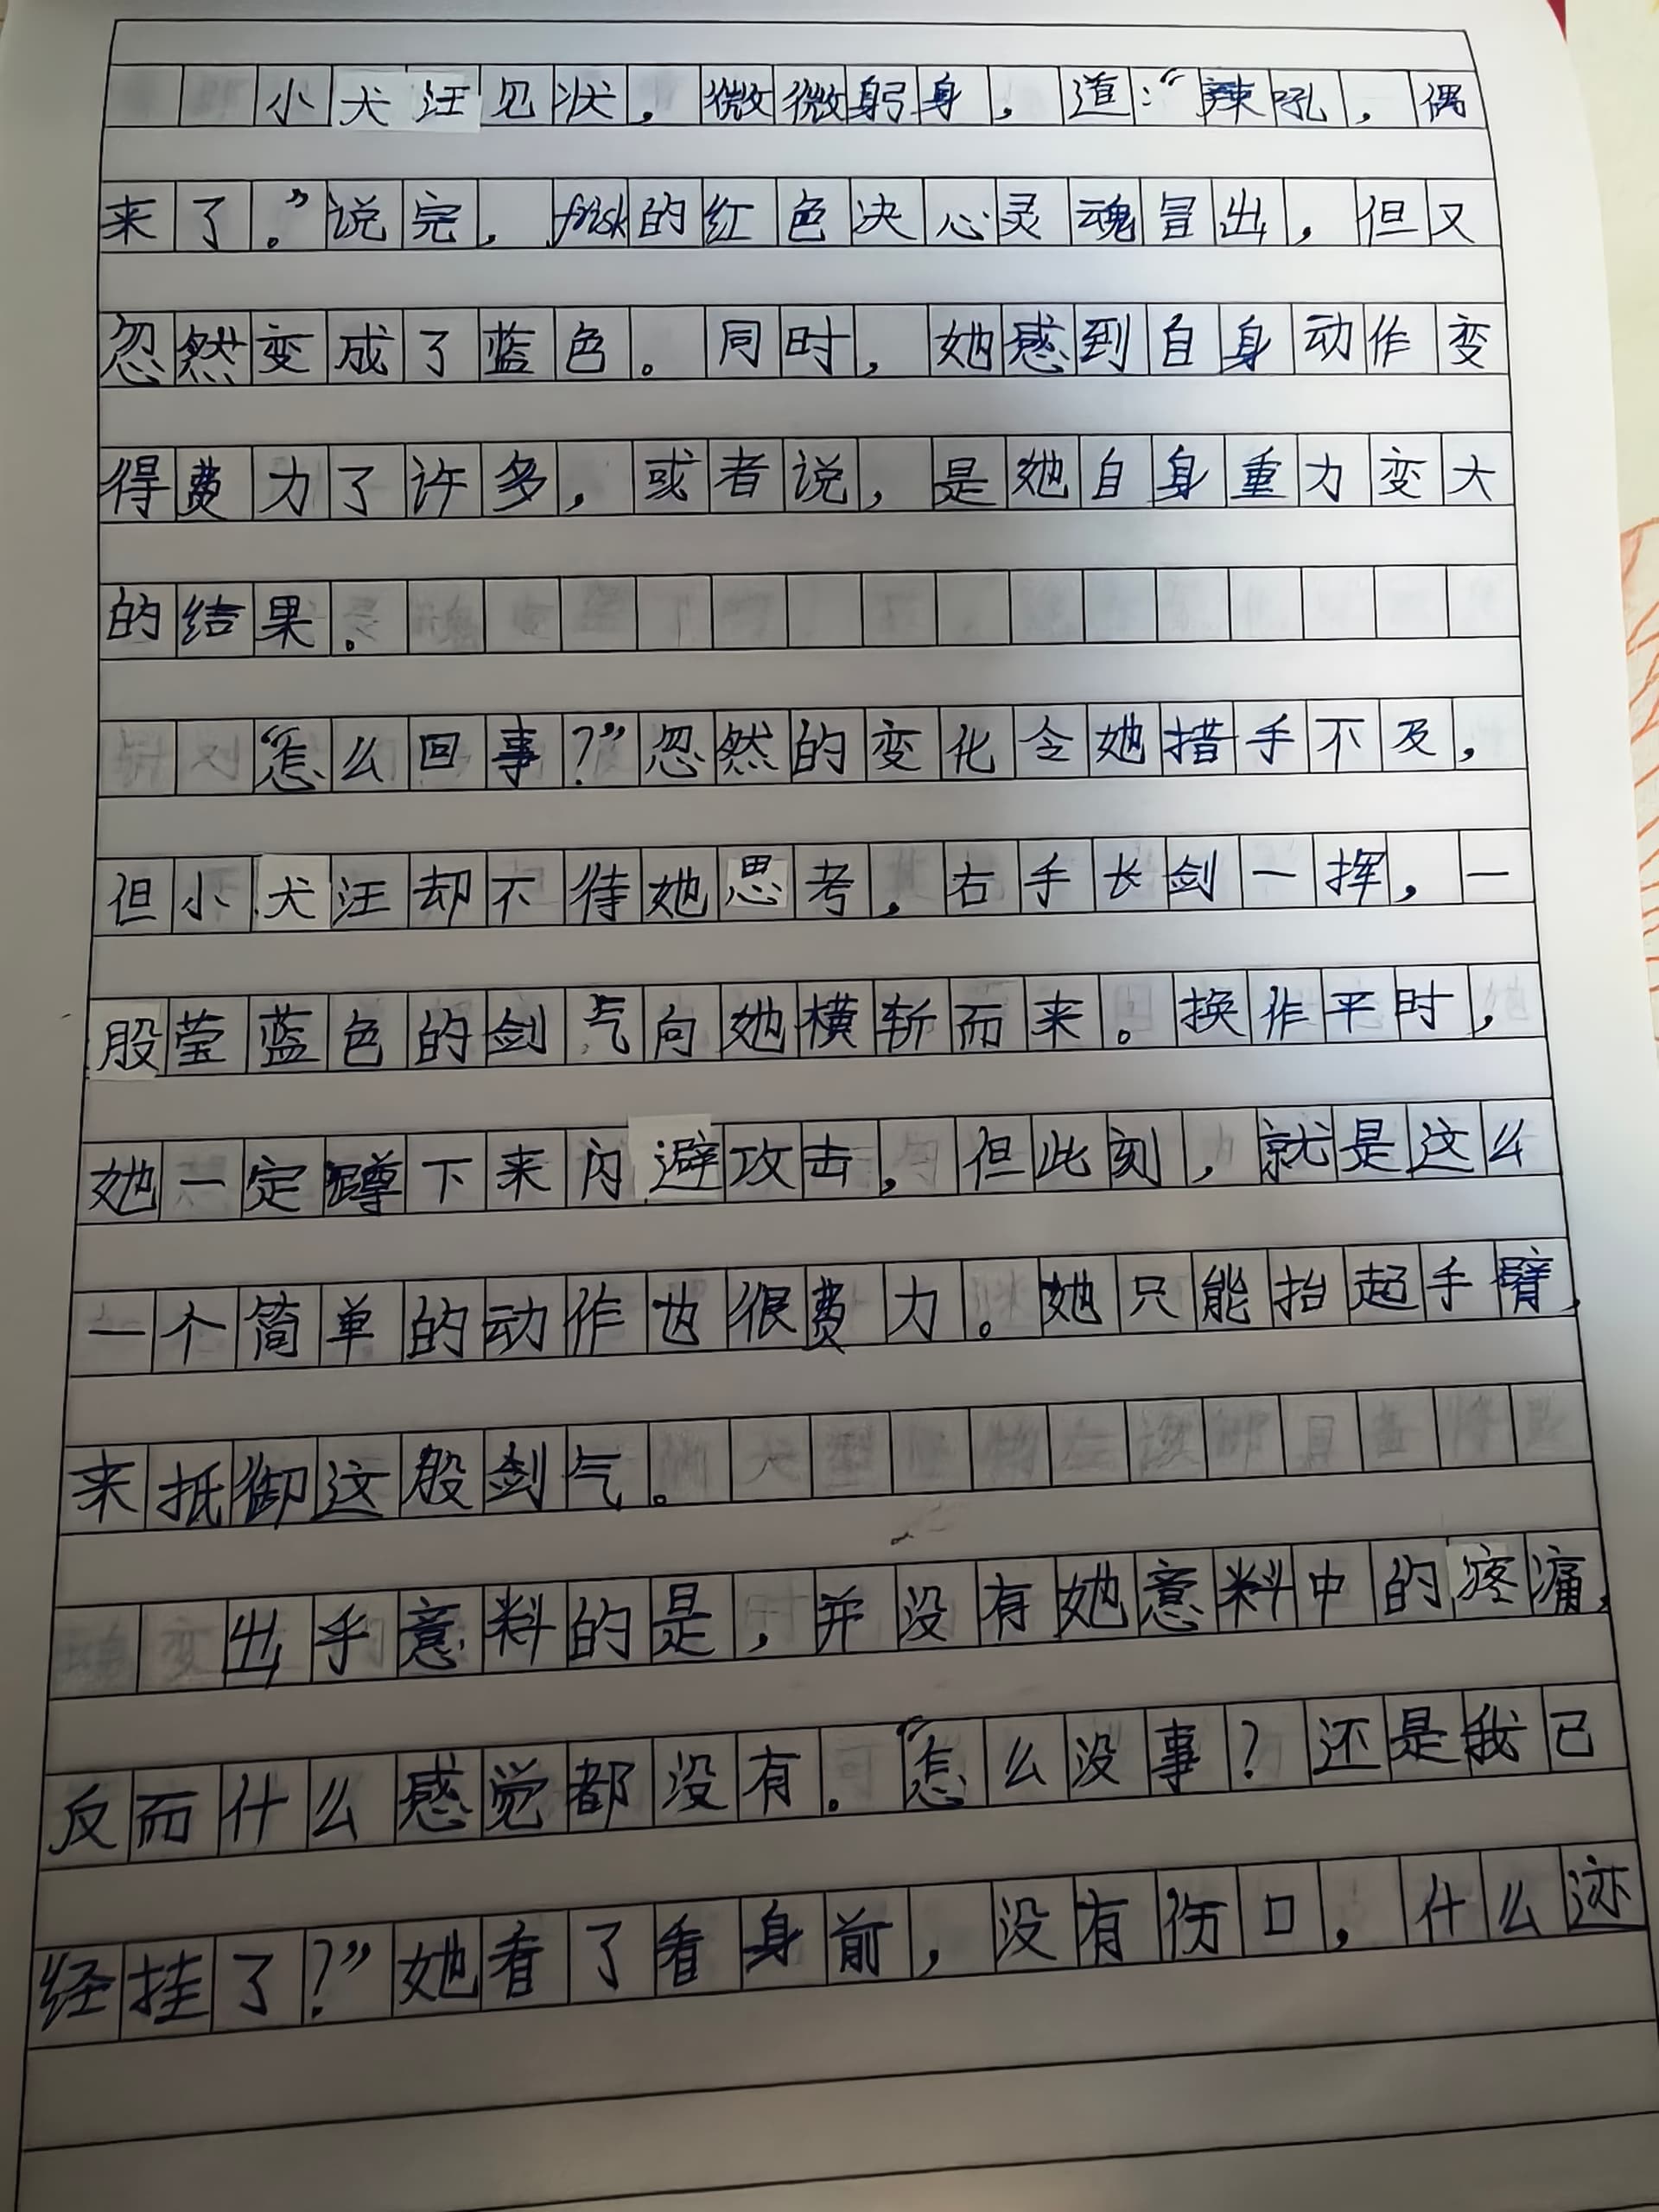 小犬汪见状，微微躬身，道：“辣吼，偶
来了。”说完，frisk的红色决心灵魂冒出，但又
忽然变成了蓝色。同时，她感到自身动作变
得费力了许多，或者说，是她自身重力变大
的结果。
“怎么回事？”忽然的变化令她措手不及，
但小犬汪却不待她思考，右手长剑一挥，一
股莹蓝色的剑气向她横斩而来。换作平时，
她一定蹲下来闪避攻击，但此刻，就是这么
一个简单的动作也很费力。她只能抬起手臂，
来抵御这股剑气。
出乎意料的是，并没有她意料中的疼痛，
反而什么感觉都没有。“怎么没事？还是我已
经挂了？”她看了看身前，没有伤口，什么迹